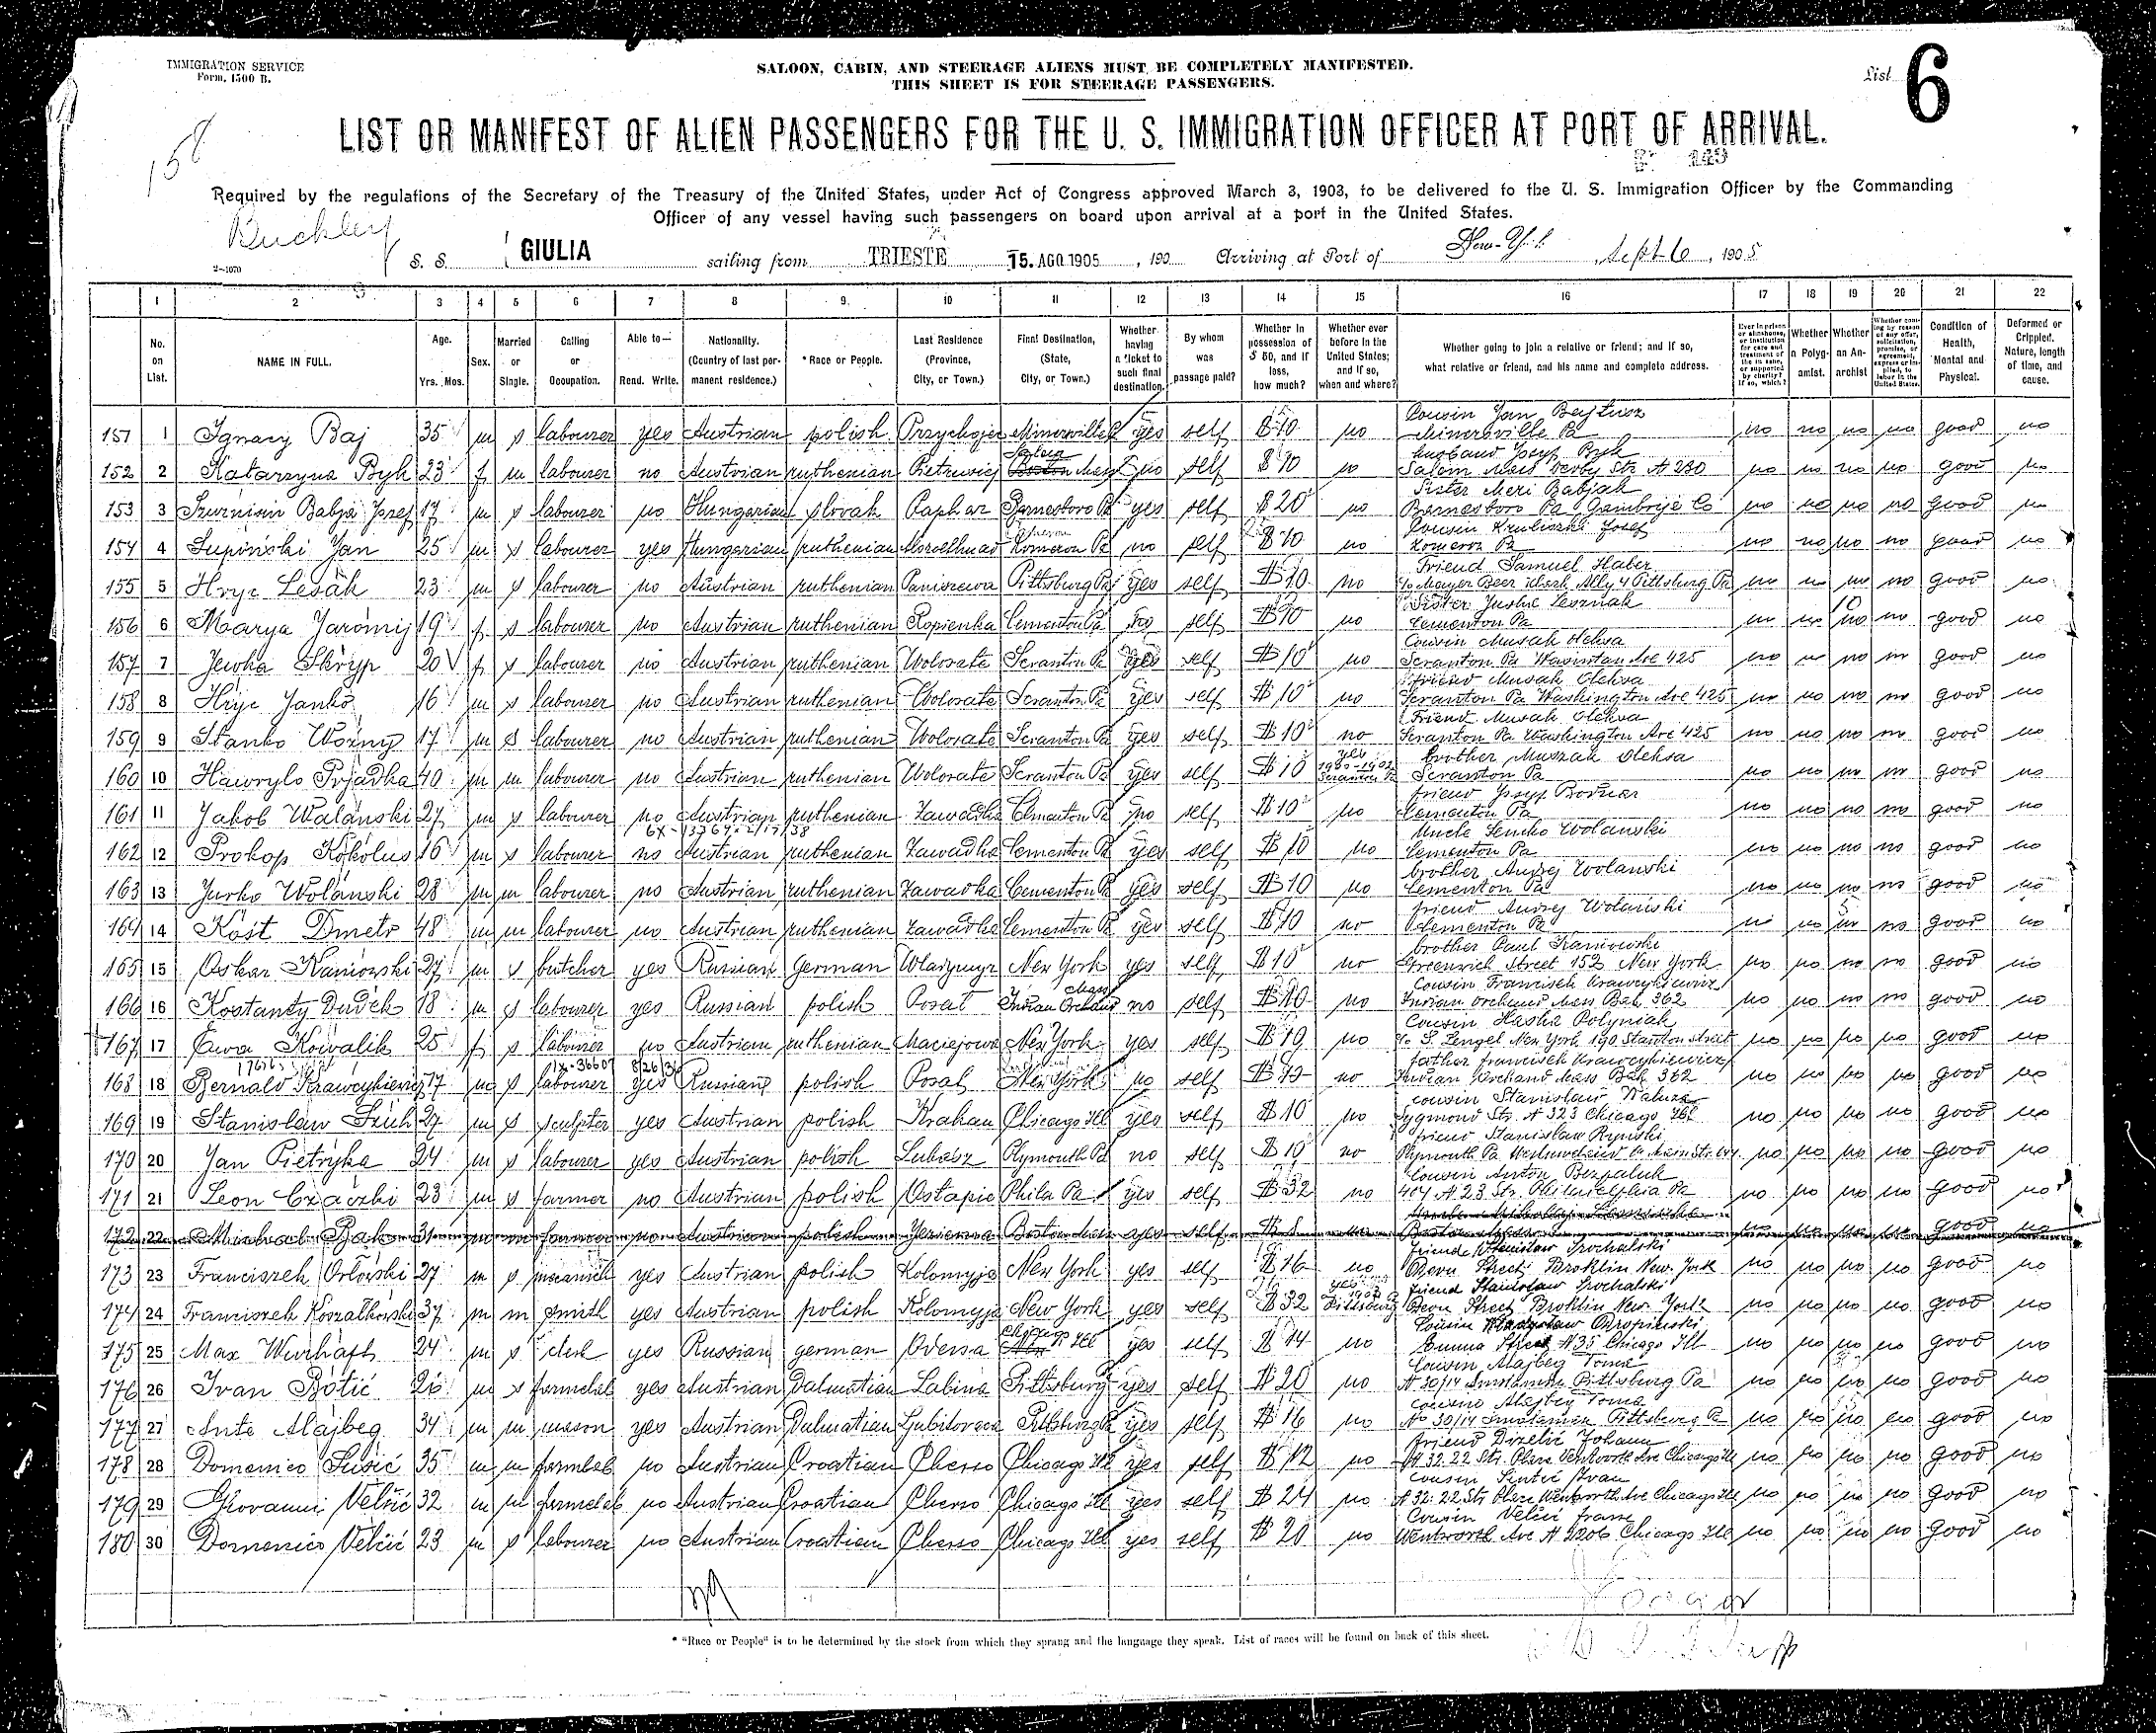 IMMIGRATION SERVICE
Form, 1500 B.
SALOON, CABIN, AND STEERAGE ALIENS MUST BE COMPLETELY MANIFESTED.
THIS SHEET IS FOR STEERAGE PASSENGERS.
List 6
158
LIST OR MANIFEST OF ALIEN PASSENGERS FOR THE U. S. IMMIGRATION OFFICER AT PORT OF ARRIVAL.
Required by the regulations of the Secretary of the Treasury of the United States, under Act of Congress approved March 3, 1903, to be delivered to the U. S. Immigration Officer by the Commanding
Officer of any vessel having such passengers on board upon arrival at a port in the United States.
Buckley
2-1070
S. S. GIULIA sailing from TRIESTE 15. AGO 1905, 190 Arriving at Port of New-York Sept 6, 1905
1 2 3 4 5 6 7 8 9. 10 11 12 13 14 15 16 17 18 19 20 21 22
No. on List. NAME IN FULL. Age. Yrs. Mos. Sex. Married or Single. Calling or Occupation. Able to— Read. Write. Nationality. (Country of last permanent residence.) *Race or People. Last Residence (Province, City, or Town.) Final Destination, (State, City, or Town.) Whether having a ticket to such final destination. By whom was passage paid? Whether in possession of $50, and if less, how much? Whether ever before in the United States; and if so, when and where? Whether going to join a relative or friend; and if so, what relative or friend, and his name and complete address. Whether a Polygamist. Whether an Anarchist Condition of Health, Mental and Physical. Deformed or Crippled. Nature, length of time, and cause.
151 1 Ignacy Baj 35 m s labourer yes Austrian polish Minersville yes self $10 no Cousin Jan Minersville Pa no no no no good no
152 2 Katarzyna Byk 23 f m labourer no Austrian ruthenian Mass no self $10 no husband Josyf Byk Salem Mass Derby Str N 230 no no no no good no
153 3 Babjá Jozef 17 m s labourer no Hungarian slovak Paphar yes self $20 no Sister Meri Babjak Barnesboro Pa no no no no good no
154 4 Lupiński Jan 25 m s labourer yes Hungarian ruthenian no self $10 no Cousin Josef Pa no no no no good no
155 5 Hryc Lesák 23 m s labourer no Austrian ruthenian Pittsburg Pa yes self $10 no Friend Samuel Haber Pittsburg Pa no no no no good no
156 6 Marya Jaromij 19 f s labourer no Austrian ruthenian Ropienka Cementon Pa no self $10 no Sister Cementon Pa no no no no good no
157 7 Jewka Skryp 20 f s labourer no Austrian ruthenian Wolosate Scranton Pa yes self $10 no Cousin Musak Oleksa Scranton Pa Ave 425 no no no no good no
158 8 Hryc Janko 16 m s labourer no Austrian ruthenian Wolosate Scranton Pa yes self $10 no friend Musak Oleksa Scranton Pa Washington Ave 425 no no no no good no
159 9 Stanko Wozny 17 m s labourer no Austrian ruthenian Wolosate Scranton Pa yes self $10 no Friend Musak Oleksa Scranton Pa Washington Ave 425 no no no no good no
160 10 Hawrylo Prjadka 40 m m labourer no Austrian ruthenian Wolosate Scranton Pa yes self $10 yes Scranton Pa brother Muszak Oleksa Scranton Pa no no no no good no
161 11 Jakob Walánski 27 m s labourer no Austrian ruthenian Zawadka Cementon Pa no self $10 no friend Josyf Cementon Pa no no no no good no
162 12 Prokop Kokolus 16 m s labourer no Austrian ruthenian Zawadka Cementon Pa yes self $10 no Uncle Senko Wolanski Cementon Pa no no no no good no
163 13 Jurko Wolánski 28 m m labourer no Austrian ruthenian Zawadka Cementon Pa yes self $10 no brother Andrej Wolanski Cementon Pa no no no no good no
164 14 Kóst Dmetr 48 m m labourer no Austrian ruthenian Zawadka Cementon Pa yes self $10 no friend Andrej Wolański Cementon Pa no no no no good no
165 15 Oskar Kaniowski 27 m s butcher yes Russian German New York yes self $10 no brother Paul Kaniowski Greenwich Street 152 New York no no no no good no
166 16 Kostanty Dudek 18 m s labourer yes Russian polish Posat Indian Orchard Mass no self $10 no Cousin Francisek Krawcykiewicz Indian Orchard Mass Bak 362 no no no no good no
167 17 Ewa Kowalik 25 f s labourer no Austrian ruthenian Maciejowa New York yes self $10 no Cousin Haska Polyniak c/o S. Lengel New York 190 Stanton Street no no no no good no
168 18 Bernard Krawcykiewicz 17 m s labourer yes Russian polish Posat New York no self no father Francisek Krawcykiewicz Indian Orchard Mass Bak 362 no no no no good no
169 19 Stanislaw Szuh 27 m s sculpter yes Austrian polish Krakau Chicago Ill yes self $10 no cousin Stanislaw Kaluza Sygmond Str. N 323 Chicago Ill no no no no good no
170 20 Jan Pietryka 24 m s labourer yes Austrian polish Lubasz Plymouth Pa no self $10 no friend Stanislaw Rynski Plymouth Pa no no no no good no
171 21 Leon 23 m s farmer no Austrian polish Ostapie Phila Pa yes self $32 no Cousin Anton Bezpaluk 404 N 23 Str. Philadelphia Pa no no no no good no
172 22 Michal Bak 31 m m farmer no Austrian polish Boston Mass yes self no Boston Mass no no no no good no
173 23 Franciszek Orłowski 27 m s yes Austrian polish Kolomyja New York yes self $16 no friend Stanislaw Prochalski Street Broklin New York no no no no good no
174 24 Franciszek Koszalkowski 37 m m smith yes Austrian polish Kolomyja New York yes self $32 yes Pittsburg friend Stanislaw Prochalski Street Broklin New York no no no no good no
175 25 Max Wurhaft 24 m s clerk yes Russian german Odessa Chicago Ill yes self $14 no Cousin Emma Street N 35 Chicago Ill no no no no good no
176 26 Ivan Botić 26 m s yes Austrian Dalmatian Labina Pittsburg Pa yes self $20 no Cousin Alajbeg Toma N 30/14 Pittsburg Pa no no no no good no
177 27 Ante Alajbeg 34 m m mason yes Austrian Dalmatian Ljubitovica Pittsburg Pa yes self $16 no cousin Alajbeg Toma No 30/14 Pittsburg Pa no no no no good no
178 28 Domenico Sušić 35 m m no Austrian Croatian Cherso Chicago Ill yes self $12 no friend Johann N 32.22 Str. Place Wentworth Ave Chicago Ill no no no no good no
179 29 Giovanni Velčić 32 m m no Austrian Croatian Cherso Chicago Ill yes self $24 no cousin Ivan N 32.22 Str Place Wentworth Ave Chicago Ill no no no no good no
180 30 Domenico Velčić 23 m s labourer no Austrian Croatian Cherso Chicago Ill yes self $20 no Cousin Velčić Frane Wentworth Ave N 2206 Chicago Ill no no no no good no
* "Race or People" is to be determined by the stock from which they sprang and the language they speak. List of races will be found on back of this sheet.